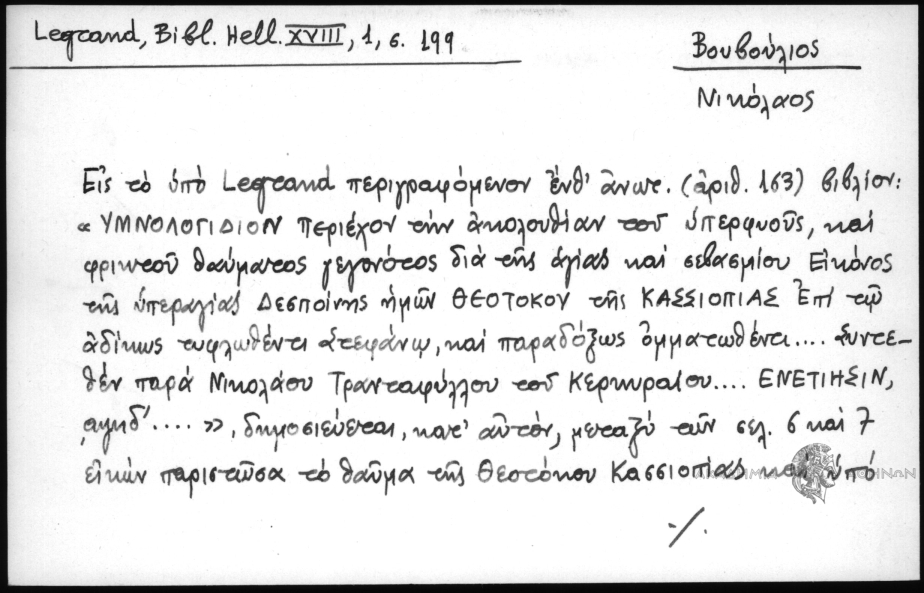 Legrand, Bibl. Hell. XVIII, 1, σ. 199
Βουβούλιος
Νικόλαος
Εἰς τὸ ὑπὸ Legrand περιγραφόμενον ἔνθ' ἄνωτ. (ἀριθ. 163) βιβλίον:
« ΥΜΝΟΛΟΓΙΔΙΟΝ περιέχον τὴν ἀκολουθίαν τοῦ ὑπερφυοῦς, καὶ
φρικτοῦ θαύματος γεγονότος διὰ τῆς ἁγίας καὶ σεβασμίου Εἰκόνος
τῆς ὑπεραγίας Δεσποίνης ἡμῶν ΘΕΟΤΟΚΟΥ τῆς ΚΑΣΣΙΟΠΙΑΣ Ἐπὶ τῷ
ἀδίκως τυφλωθέντι Στεφάνῳ, καὶ παραδόξως ὀμματωθέντι.... Συντε-
θὲν παρὰ Νικολάου Τριανταφύλλου τοῦ Κερκυραίου.... ΕΝΕΤΙΗΣΙΝ,
͵αψηδ'.... », δημοσιεύεται, κατ' αὐτόν, μεταξὺ τῶν σελ. 6 καὶ 7
εἰκὼν παριστῶσα τὸ θαῦμα τῆς Θεοτόκου Κασσιοπίας καὶ ὑπὸ
ΑΚΑΔΗΜΙΑ ΑΘΗΝΩΝ
·/.